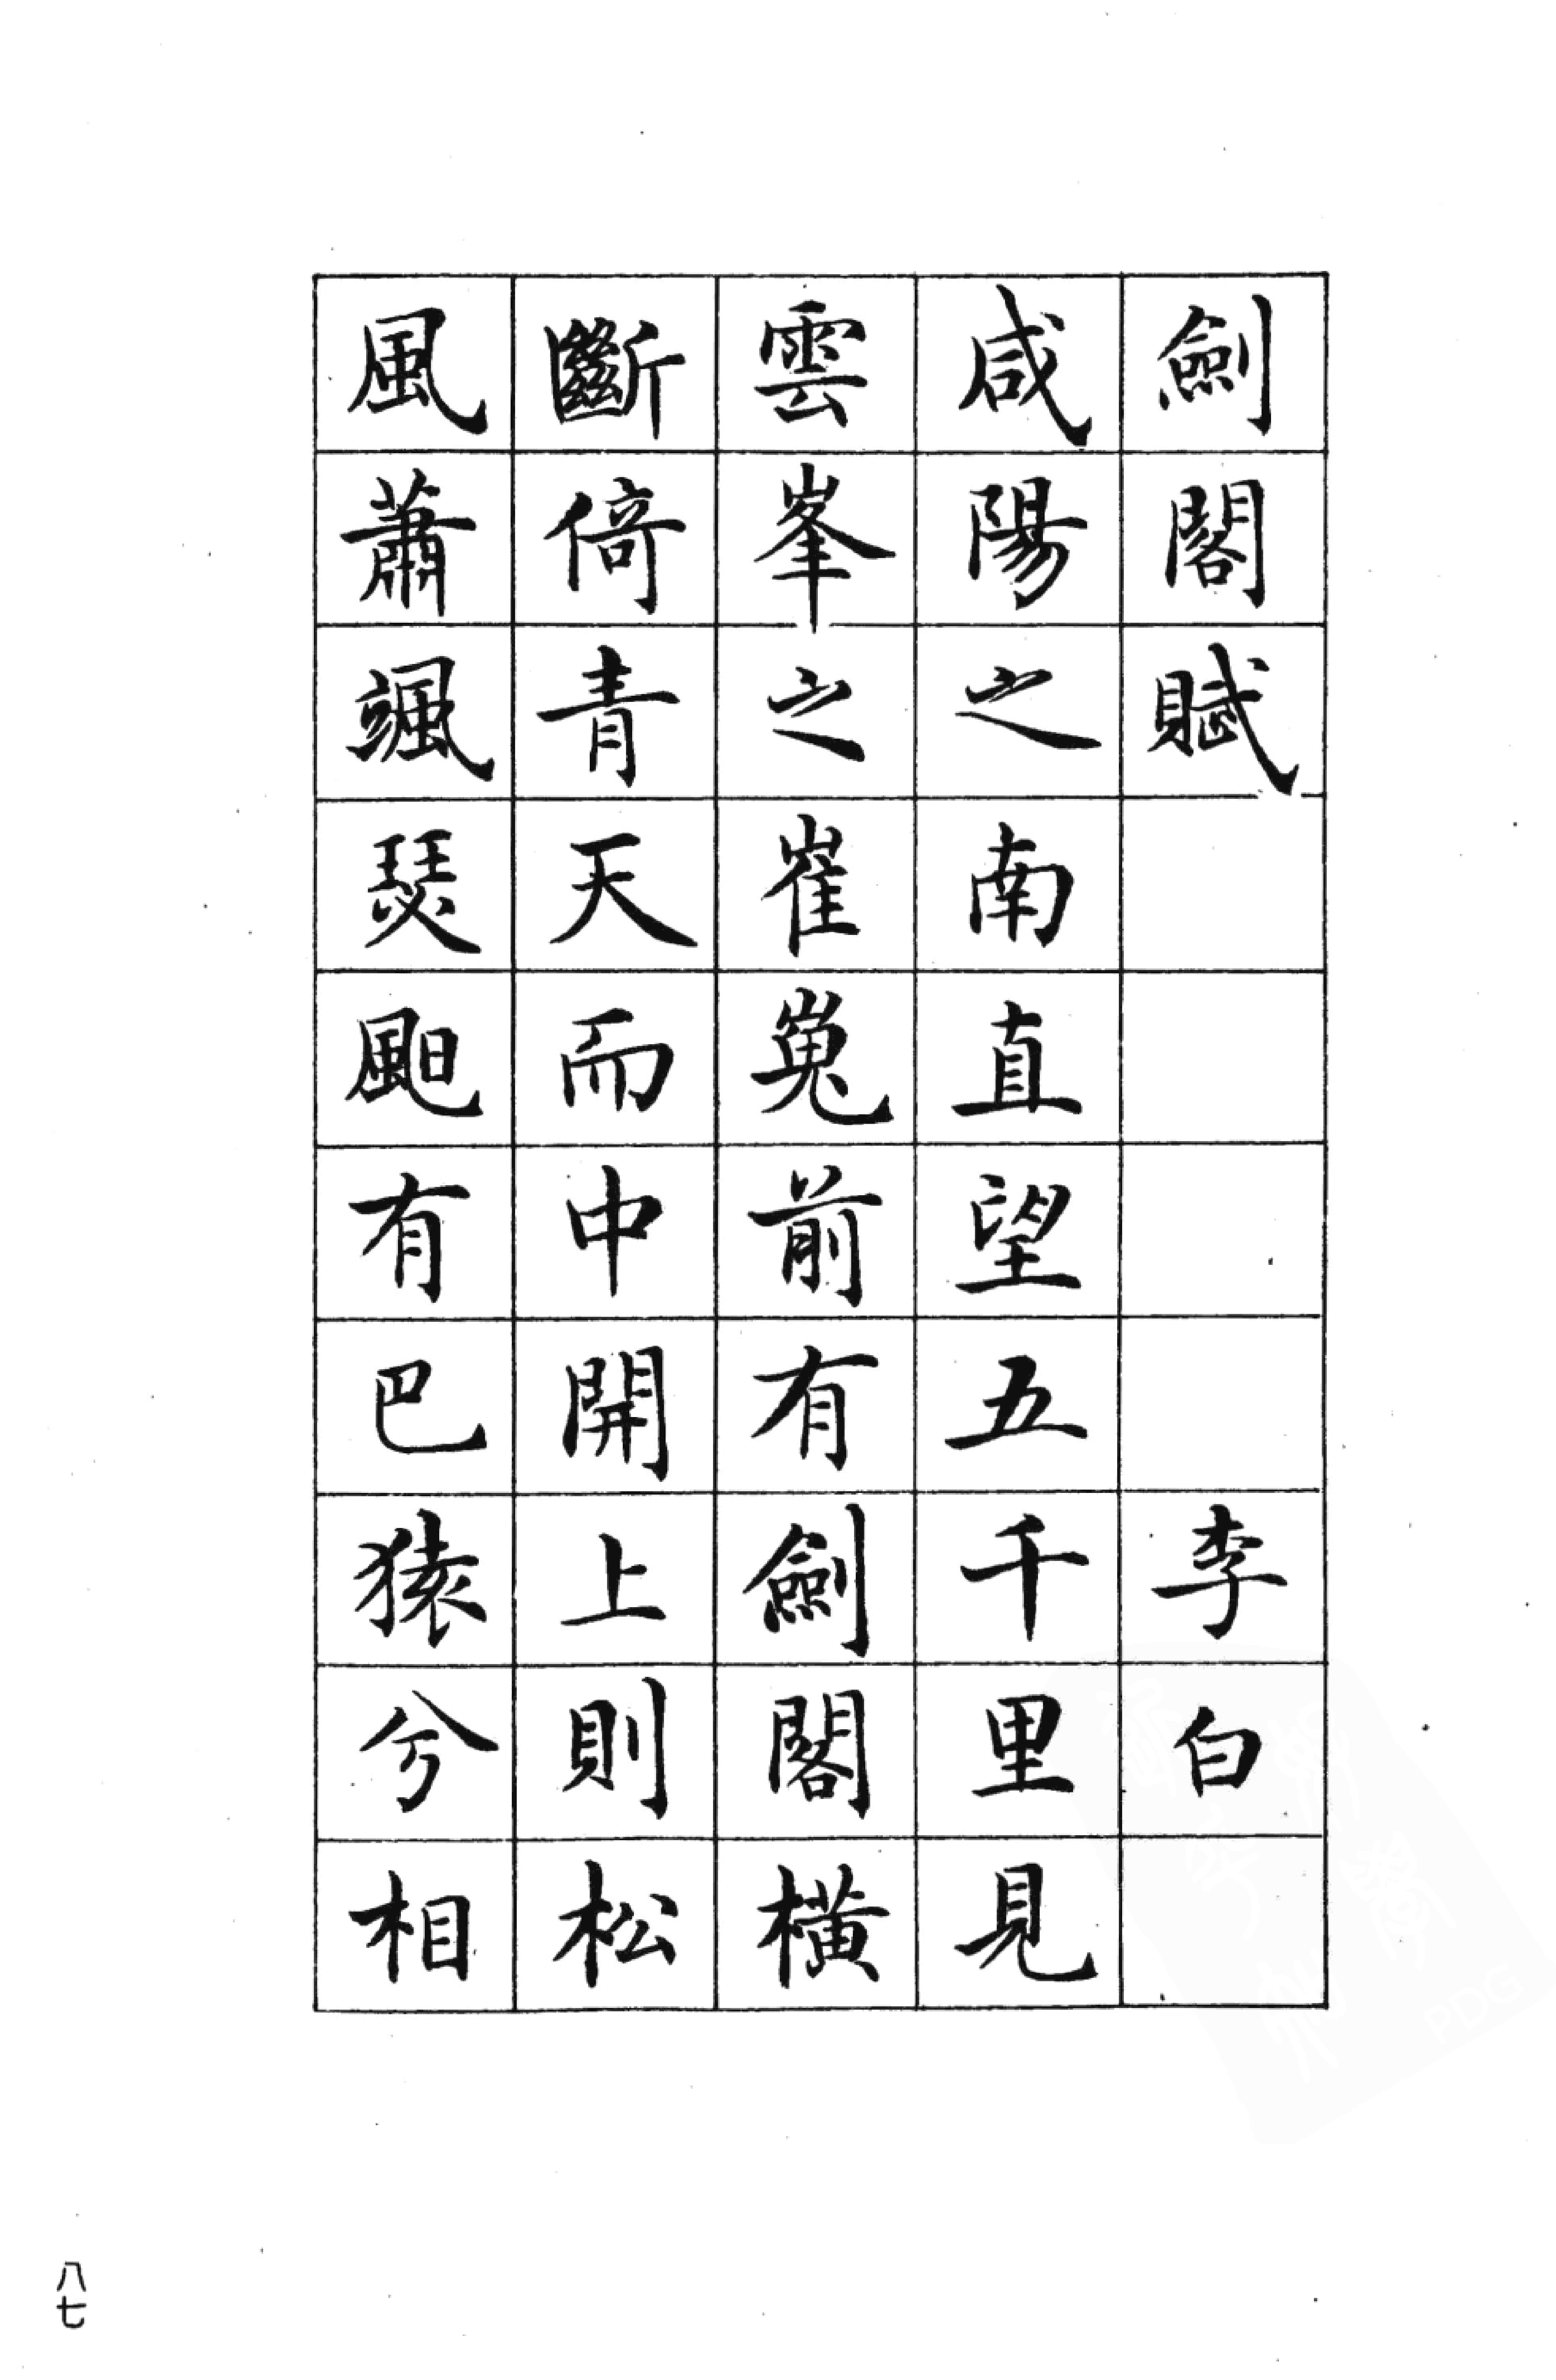 劍閣賦 李白
咸陽之南直望五千里見
雲峯之崔嵬前有劍閣橫
斷倚青天而中開上則松
風蕭颯瑟䬅有巴猿兮相
八七